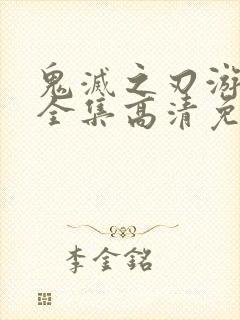 鬼滅之刃游
全集高清免
李金銘